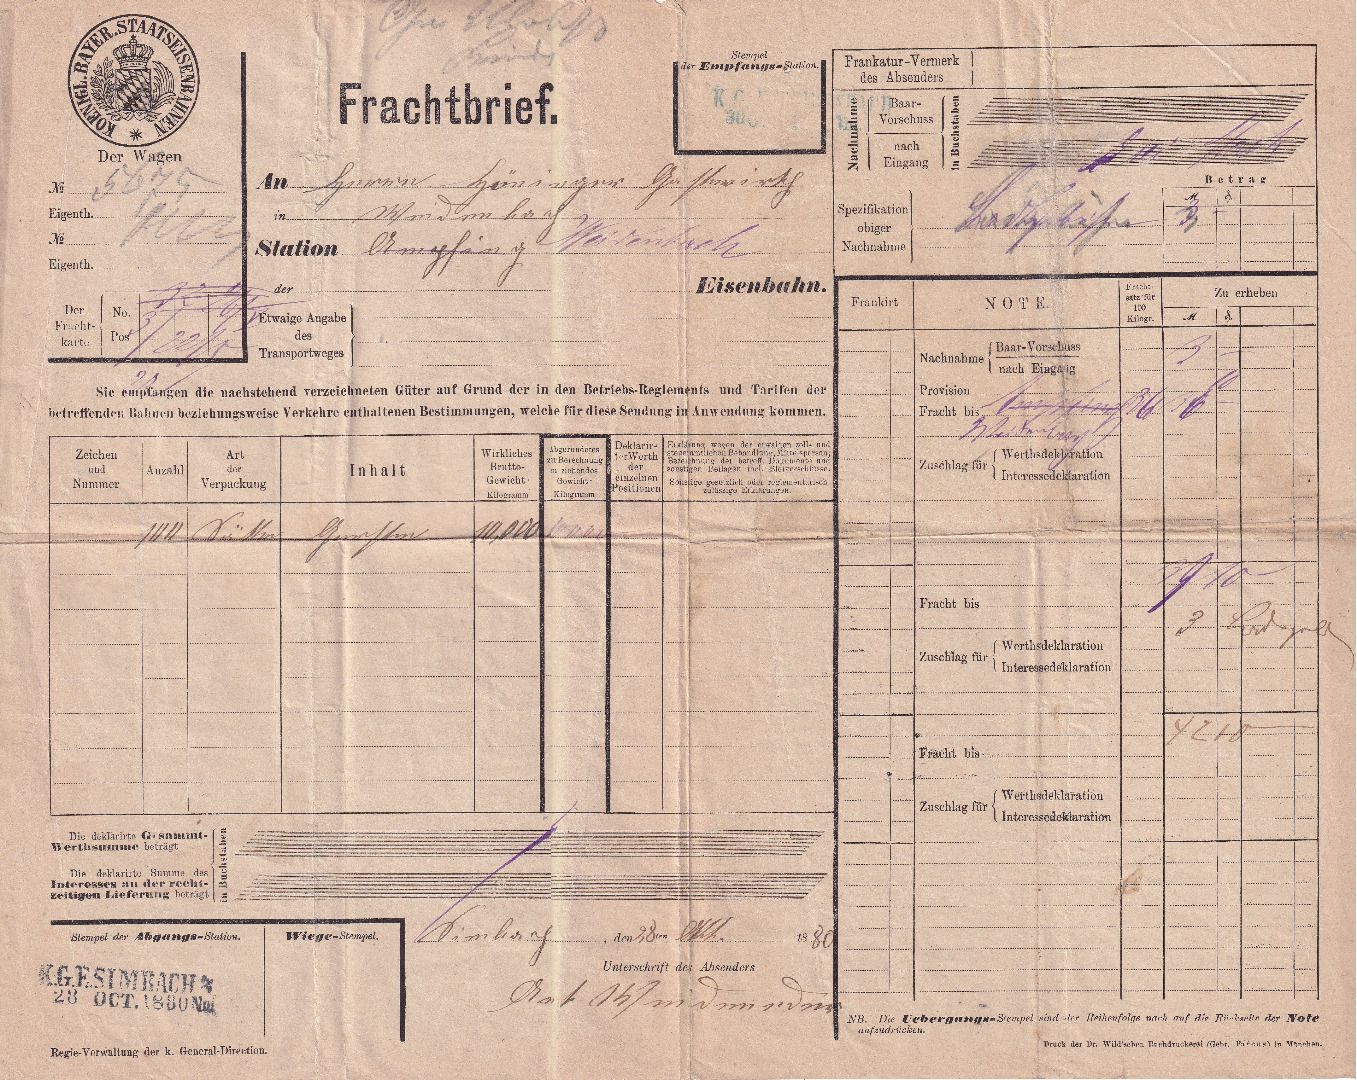 KOENIGL. BAYER. STAATSEISENBAHNEN
Frachtbrief.
Stempel
der Empfangs-Station.
Der Wagen
№ 5675
Eigenth.
№
Eigenth.
Der Fracht-karte
No.
Pos
An Herrn Höninger Gastwirth
in Weidenbach
Station Ampfing Weidenbach
der Eisenbahn.
Etwaige Angabe
des
Transportweges
Sie empfangen die nachstehend verzeichneten Güter auf Grund der in den Betriebs-Reglements und Tarifen der
betreffenden Bahnen beziehungsweise Verkehre enthaltenen Bestimmungen, welche für diese Sendung in Anwendung kommen.
Zeichen und Nummer
Anzahl
Art der Verpackung
Inhalt
Wirkliches Brutto-Gewicht- Kilogramm
Abgerundetes zur Berechnung zu ziehendes Gewicht- Kilogramm
Deklarirter Werth der einzelnen Positionen
Erklärung wegen der etwaigen zoll- und
steueramtlichen Behandlung,
Bezeichnung der betreff. Dokumente und
sonstigen Beilagen incl. Bleiverschlüsse.
Sonstige gesetzlich oder reglementarisch
zulässige Erklärungen.
Gersten 10,000
Die deklarirte Gesammt-
Werthsumme beträgt
in Buchstaben
Die deklarirte Summe des
Interesses an der recht-
zeitigen Lieferung beträgt
in Buchstaben
Stempel der Abgangs-Station.
Wiege-Stempel.
K.G.E. SIMBACH
28 OCT. 1880 Nm
Simbach, den 28ten Okt. 1880
Unterschrift des Absenders
Regie-Verwaltung der k. General-Direction.
Frankatur-Vermerk
des Absenders
Nachnahme
Baar-Vorschuss
nach Eingang
in Buchstaben
Betrag
M. ₰.
Spezifikation
obiger
Nachnahme
3 -
Frankirt
NOTE.
Frachtsatz für 100 Kilogr.
Zu erheben
M. ₰.
Nachnahme
Baar-Vorschuss
nach Eingang
3 -
Provision
Fracht bis
Weidenbach
Zuschlag für
Werthsdeklaration
Interessedeklaration
39 10
Fracht bis
3
Zuschlag für
Werthsdeklaration
Interessedeklaration
42 10
Fracht bis
Zuschlag für
Werthsdeklaration
Interessedeklaration
NB. Die Uebergangs-Stempel sind der Reihenfolge nach auf die Rückseite der Note
aufzudrücken.
Druck der Dr. Wild'schen Buchdruckerei (Gebr. Parcus) in München.